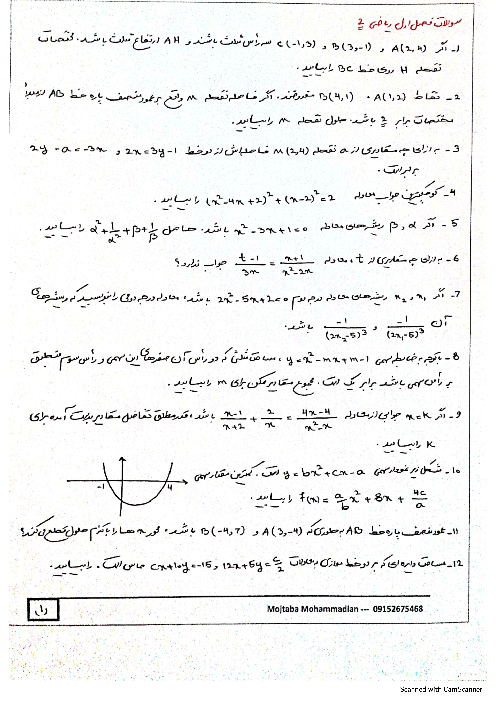 سوالات فصل اول ریاضی 2
1- اگر A(2,4) و B(3,-1) و C(-1,3) سه رأس مثلث باشند و AH ارتفاع مثلث باشد. مختصات
نقطه H روی خط BC را بیابید.
2- نقاط A(1,2) . B(4,1) مفروضند. اگر فاصله نقطه M واقع بر عمود منصف پاره خط AB از مبدأ
مختصات برابر 2 باشد. طول نقطه M را بیابید.
3- به ازای چه مقداری از a نقطه M(2,4) فاصله‌اش از دو خط 2x=3y-1 و 2y-a=-3x
برابر است.
4- کوچکترین جواب معادله (x²-4x+2)²+(x-2)²=2 را بیابید.
5- اگر α, β ریشه‌های معادله x²-3x+1=0 باشد. حاصل α²+1/α²+β+1/β را بیابید.
6- به ازای چه مقداری از t، معادله (x+1)/(x²-2x) = (t-1)/3x جواب ندارد؟
7- اگر x₁ و x₂ ریشه‌های معادله درجه دوم 2x²-5x+2=0 باشد، معادله درجه دومی را بنویسید که ریشه‌های
آن -1/(2x₁-5)³ و -1/(2x₂-5)³ باشد.
8- باتوجه به ضابطه سهمی y=x²-mx+m-1، مساحت مثلثی که دو رأس آن صفرهای این سهمی و رأس سوم منطبق
بر رأس سهمی باشد برابر یک است. مجموع مقادیر ممکن برای m را بیابید.
9- اگر x=k جوابی از معادله (x-1)/(x+2) + 2/x = (4x-4)/(x²-x) باشد، قدر مطلق تفاضل مقادیر بدست آمده برای
k را بیابید.
10- شکل زیر نمودار سهمی y=bx²+cx-a است. کمترین مقدار سهمی
f(x)= a/b x²+8x+ 4c/a را بیابید.
-1 4
11- عمود منصف پاره خط AB بطوری که A(3,-4) و B(-4,7) باشد، محور x ها را با کدام طول قطع می‌کند؟
12- مساحت دایره‌ای که بر دو خط موازی به معادلات 12x+5y=c/2 و cx+10y=-15 مماس است. را بیابید.
(1)
Mojtaba Mohammadian --- 09152675468
Scanned with CamScanner